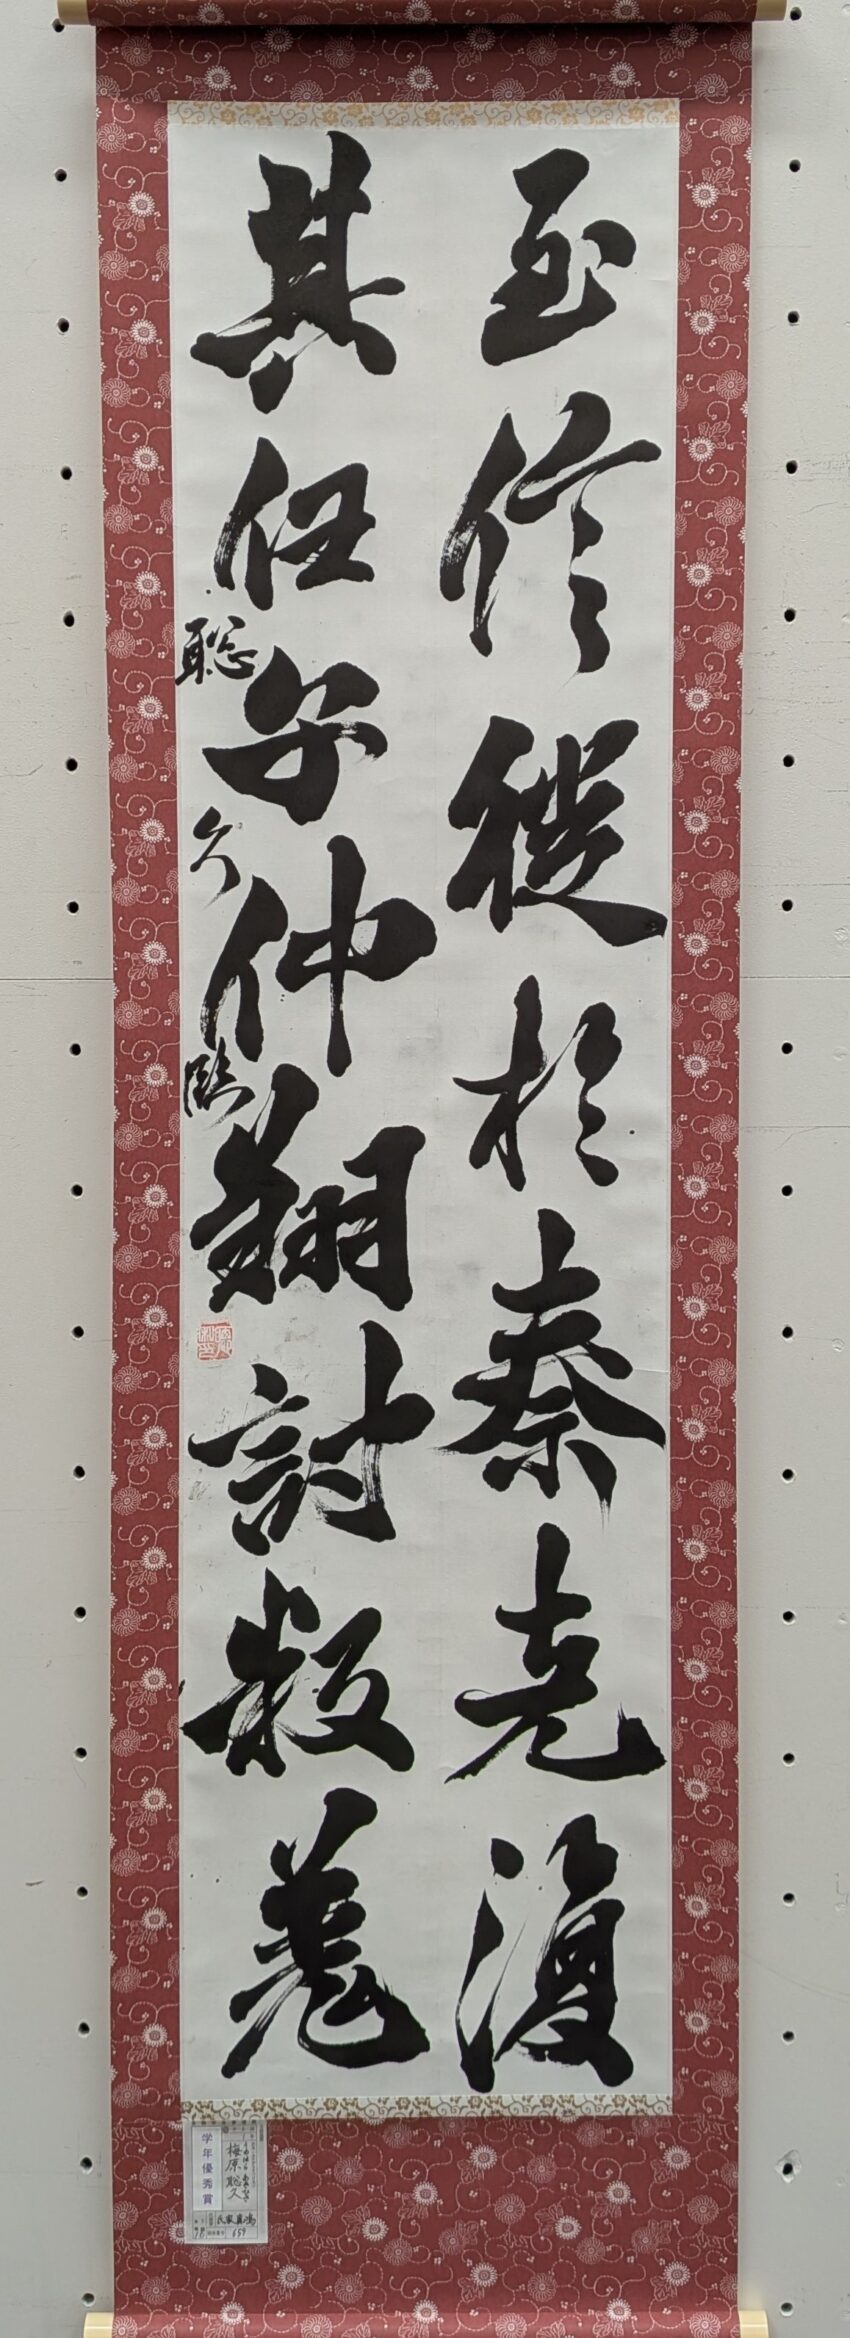 至信徙於秦克復
其任子仲翔討叛羌
聡久臨
学年優秀賞
梅原聡久
659